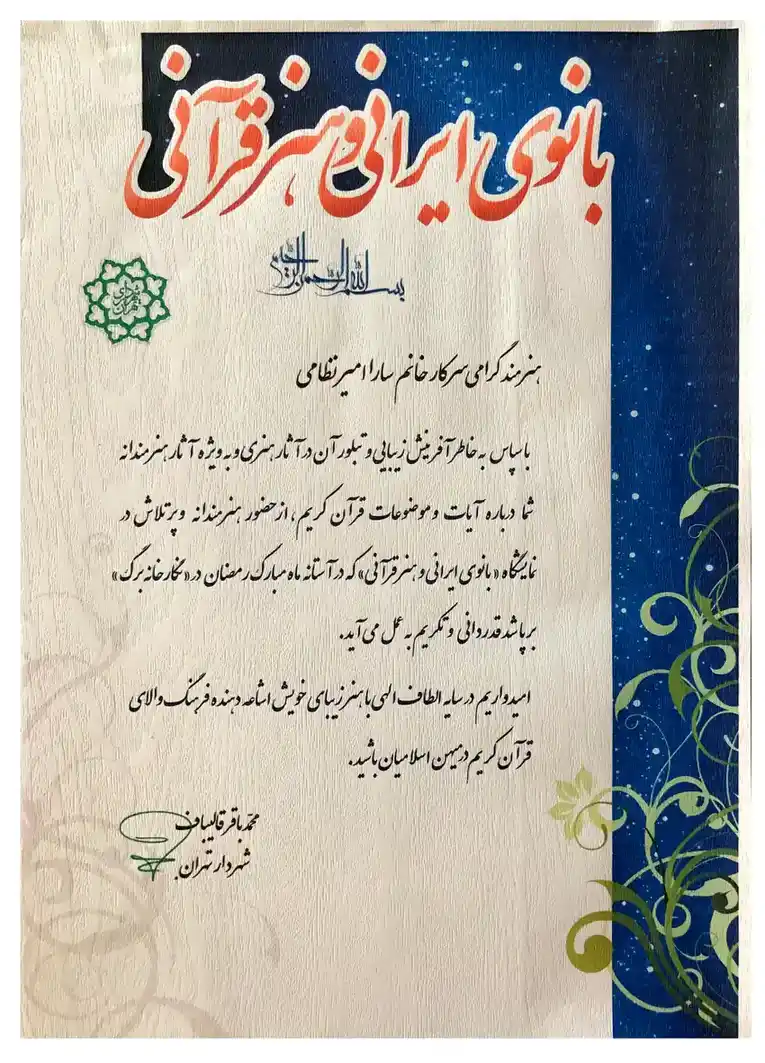 بانوی ایرانی و هنر قرآنی
بسم الله الرحمن الرحیم
شهرداری تهران
هنرمند گرامی سرکار خانم سارا امیرنظامی
با سپاس به خاطر آفرینش زیبایی و تبلور آن در آثار هنری و به ویژه آثار هنرمندانه
شما درباره آیات و موضوعات قرآن کریم، از حضور هنرمندانه و پرتلاش در
نمایشگاه «بانوی ایرانی و هنر قرآنی» که در آستانه ماه مبارک رمضان در «نگارخانه برگ»
برپا شد قدردانی و تکریم به عمل می آید.
امیدواریم در سایه الطاف الهی با هنر زیبای خویش اشاعه دهنده فرهنگ والای
قرآن کریم در میهن اسلامیان باشید.
محمدباقر قالیباف
شهردار تهران